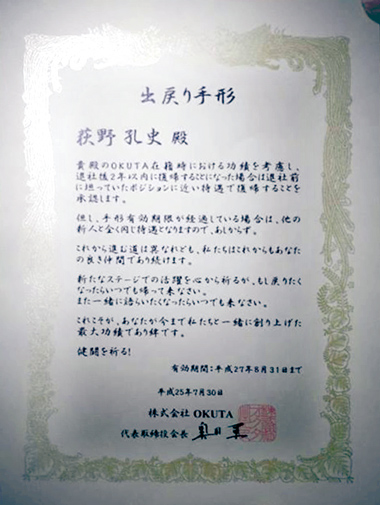 出戻り手形
荻野 孔史 殿
貴殿のOKUTA在籍時における功績を考慮し、
退社後2年以内に復帰することになった場合は退社前
に担っていたポジションに近い待遇で復帰することを
承認します。
但し、手形有効期限が経過している場合は、他の
新人と全く同じ待遇となりますので、あしからず。
これから進む道は異なれども、私たちはこれからもあなた
の良き仲間であり続けます。
新たなステージでの活躍を心から祈るが、もし戻りたく
なったらいつでも帰って来なさい。
また一緒に語らいたくなったらいつでも来なさい。
これこそが、あなたが今まで私たちと一緒に創り上げた
最大功績であり絆です。
健闘を祈る!
有効期間:平成27年8月31日まで
平成25年7月30日
株式会社 OKUTA
代表取締役会長